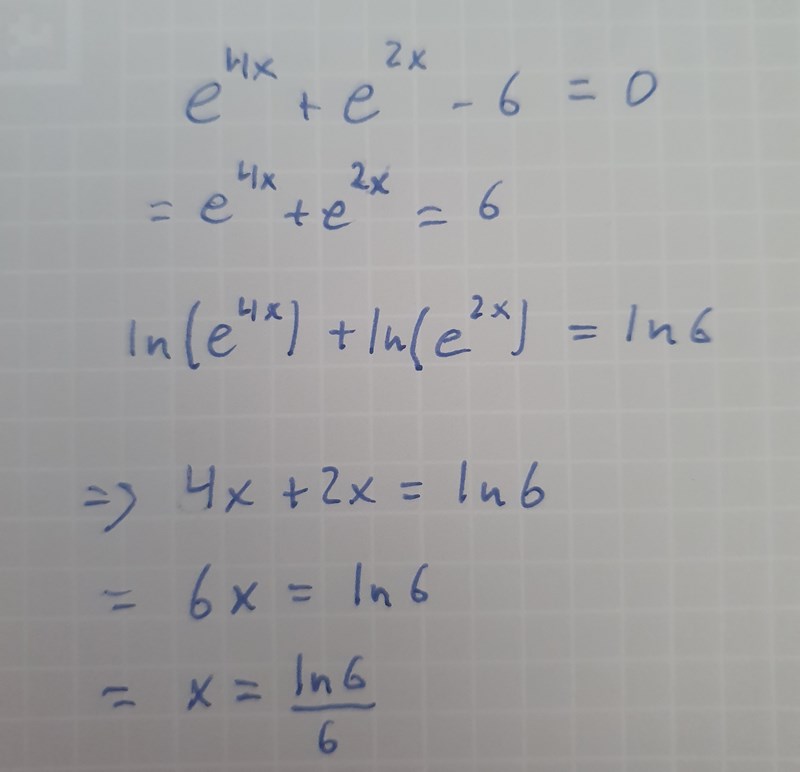 e^{4x} + e^{2x} - 6 = 0
= e^{4x} + e^{2x} = 6
ln(e^{4x}) + ln(e^{2x}) = ln6
=> 4x + 2x = ln6
= 6x = ln6
= x = \frac{ln6}{6}